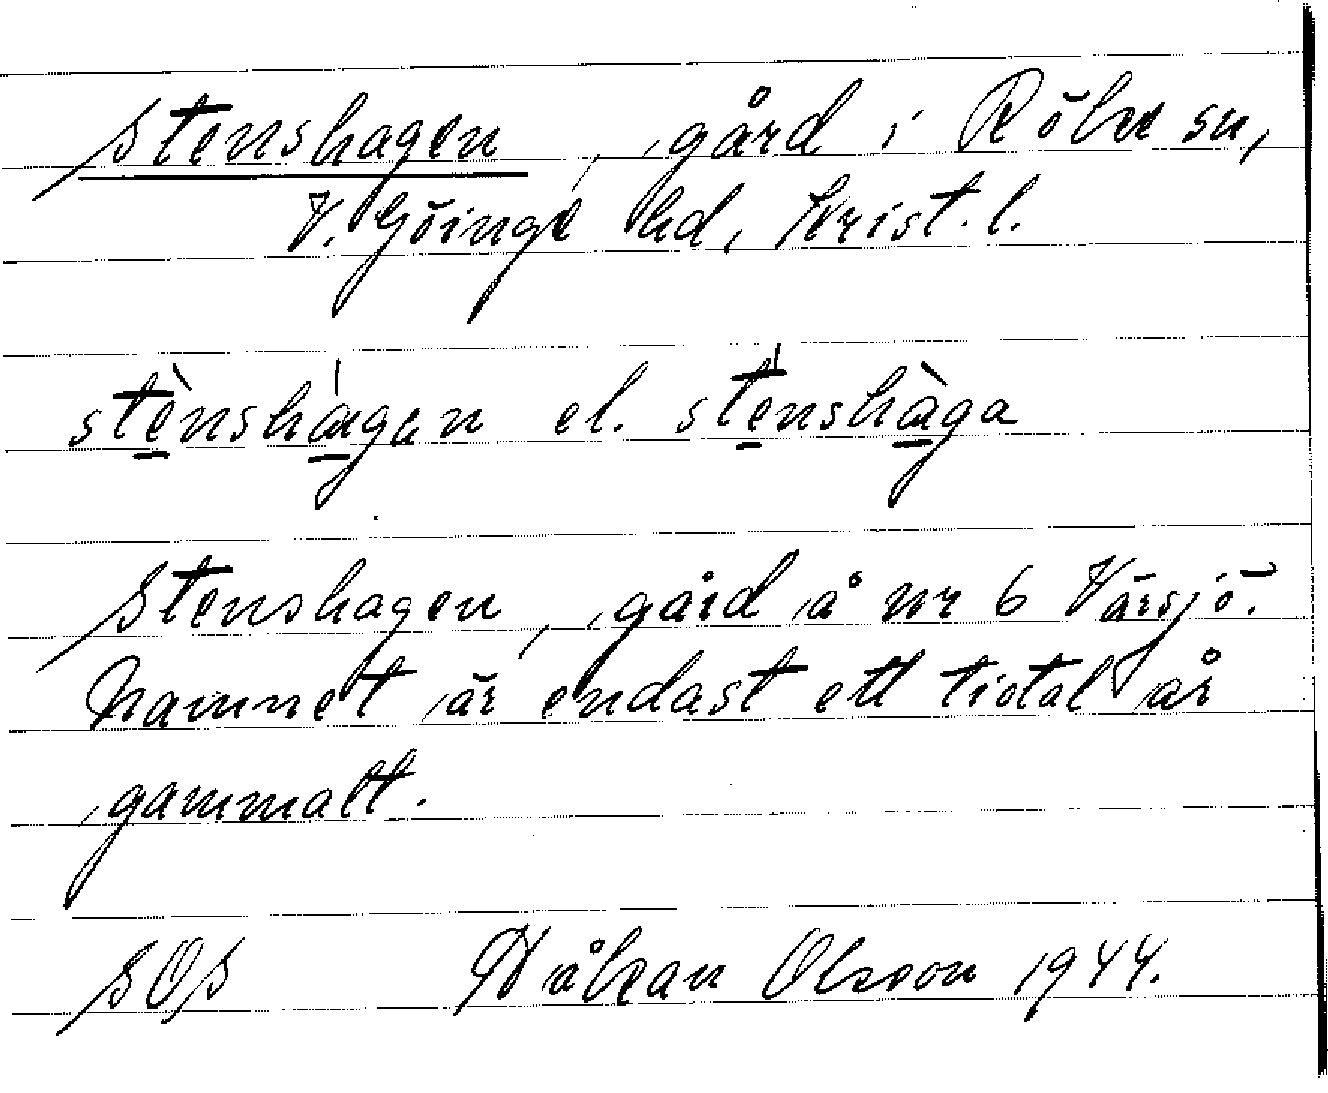 Stenshagen, gård i Röke sn,
V. Göinge hd, Krist. l.
stènshágen el. sténshàga
Stenshagen, gård å nr 6 Värsjö.
Namnet är endast ett tiotal år
gammalt.
SOS Håkan Olsson 1944.